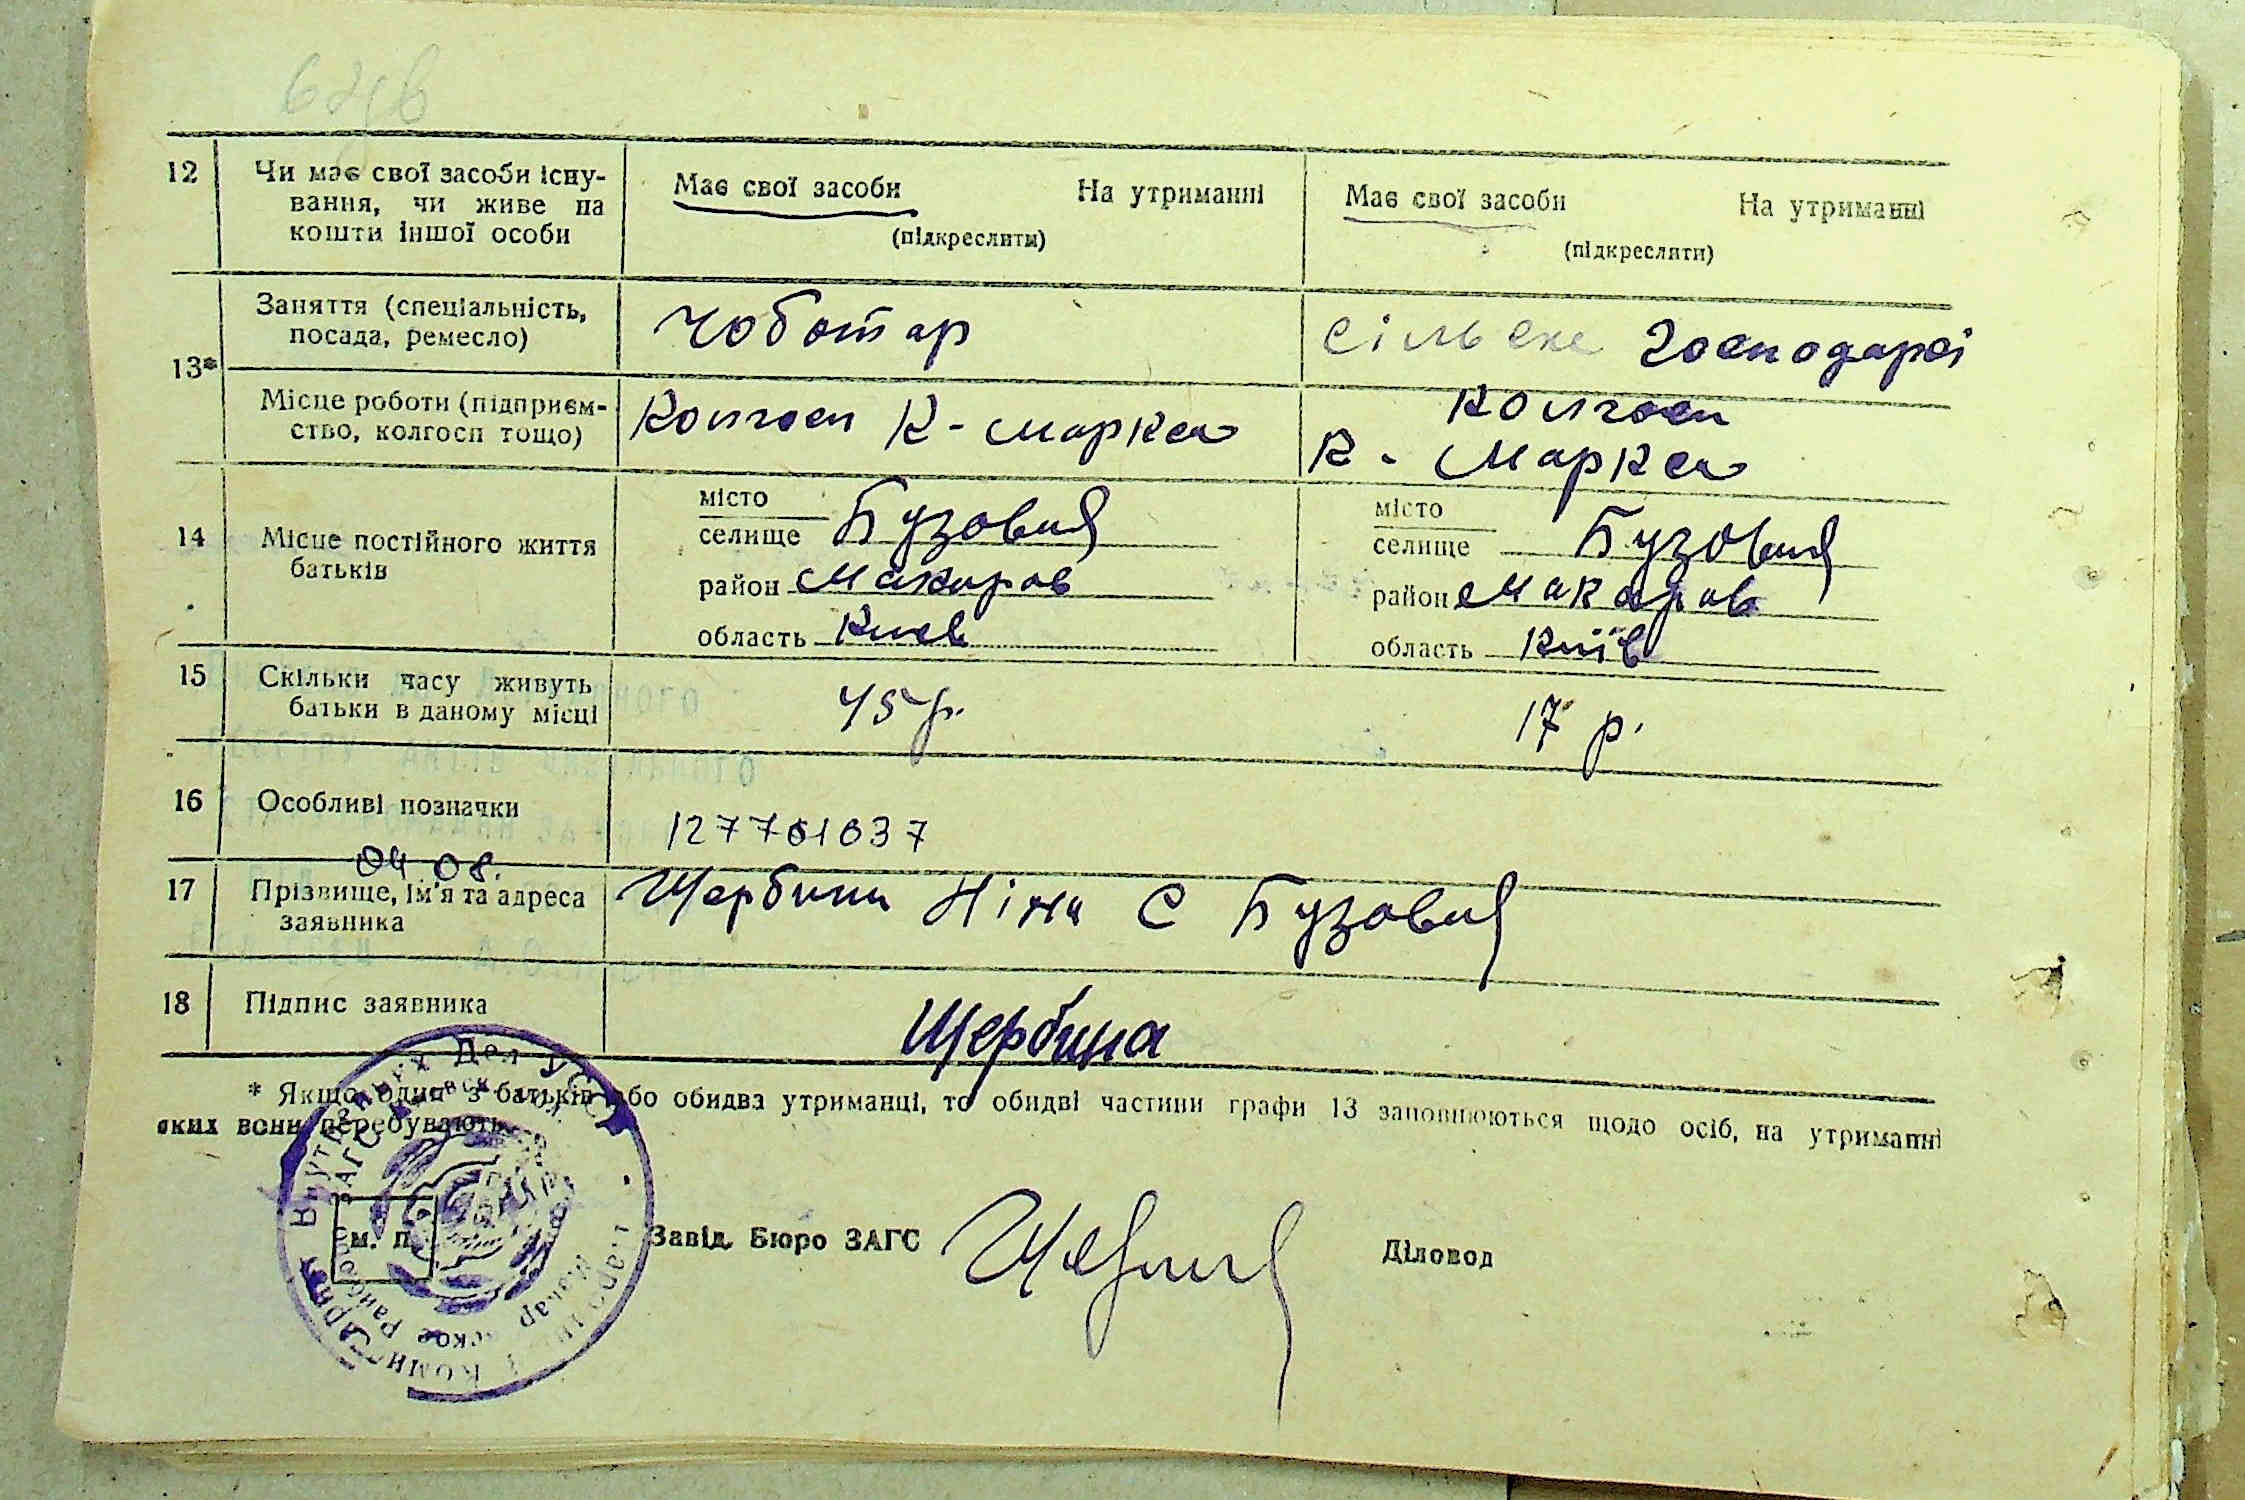 12 Чи має свої засоби існу-
вання, чи живе на
кошти іншої особи
Має свої засоби На утриманні
(підкреслити)
Має свої засоби На утриманні
(підкреслити)
13*
Заняття (спеціальність,
посада, ремесло)
Чоботар
Сільске господарсі
Місце роботи (підприєм-
ство, колгосп тощо)
Колгосп К-Маркса
Колгосп
К-Маркса
14 Місце постійного життя
батьків
місто
селище Бузовия
район Макаров
область Киев
місто
селище Бузовия
район Макаров
область Київ
15 Скільки часу живуть
батьки в даному місці
45 р.
17 р.
16 Особливі позначки
127701037
04 08.
17 Прізвище, ім'я та адреса
заявника
Щербина Ніна С Бузовия
18 Підпис заявника
Щербина
* Якщо один з батьків або обидва утриманці, то обидві частини графи 13 заповнюються щодо осіб, на утриманні
яких вони перебувають
м. п.
Завід. Бюро ЗАГС
Діловод
Внутренних Дел УССР
ЗАГС